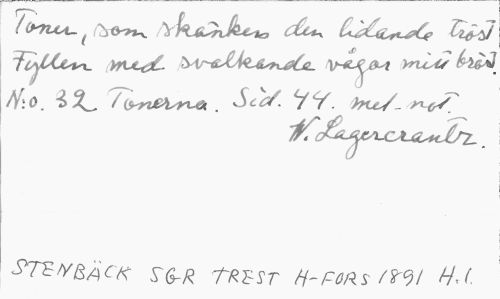 Toner, som skänken den lidande tröst
Fyllen med svalkande vågor mitt bröst.
N:o. 32 Tonerna. Sid. 44. met. not.
W. Lagercrantz.
STENBÄCK SGR TREST H-FORS 1891 H.1.